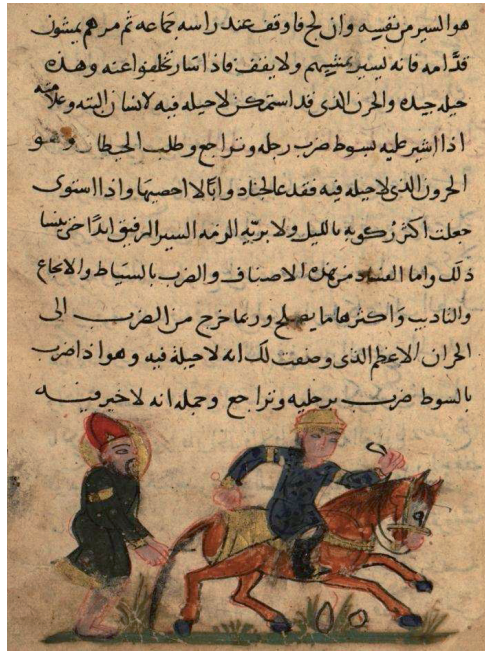 هو السير من نفسه وان لح فاوقف عند راسه جماعه ثم مرهم يمشون
قدامه فانه يسير بمشيهم ولا يقف فاذا سار تخلفوا عنه وهذه
حيله جيده والحرن الذى قد استمكن لا حيله فيه لانسان البته وعلامته
اذا اشير عليه بسوط ضرب رجله وتراجع وطلب الحيطان وهو
الحرون الذى لا حيله فيه فقد عالجنا دوابا لا احصيها واذا استوى
جعلت اكثر ركوبه بالليل ولا بريه الزمه السير الرفيق ابدا حتى ينسا
ذلك واما العضاد من هذه الاصناف والضرب بالسياط والايجاع
والتاديب واكثرها ما يصلح وربما خرج من الضرب الى
الحران الاعظم الذى وصفت لك انه لا حيلة فيه وهو اذا ضرب
بالسوط ضرب برجليه وتراجع وجمله انه لا خير فيه